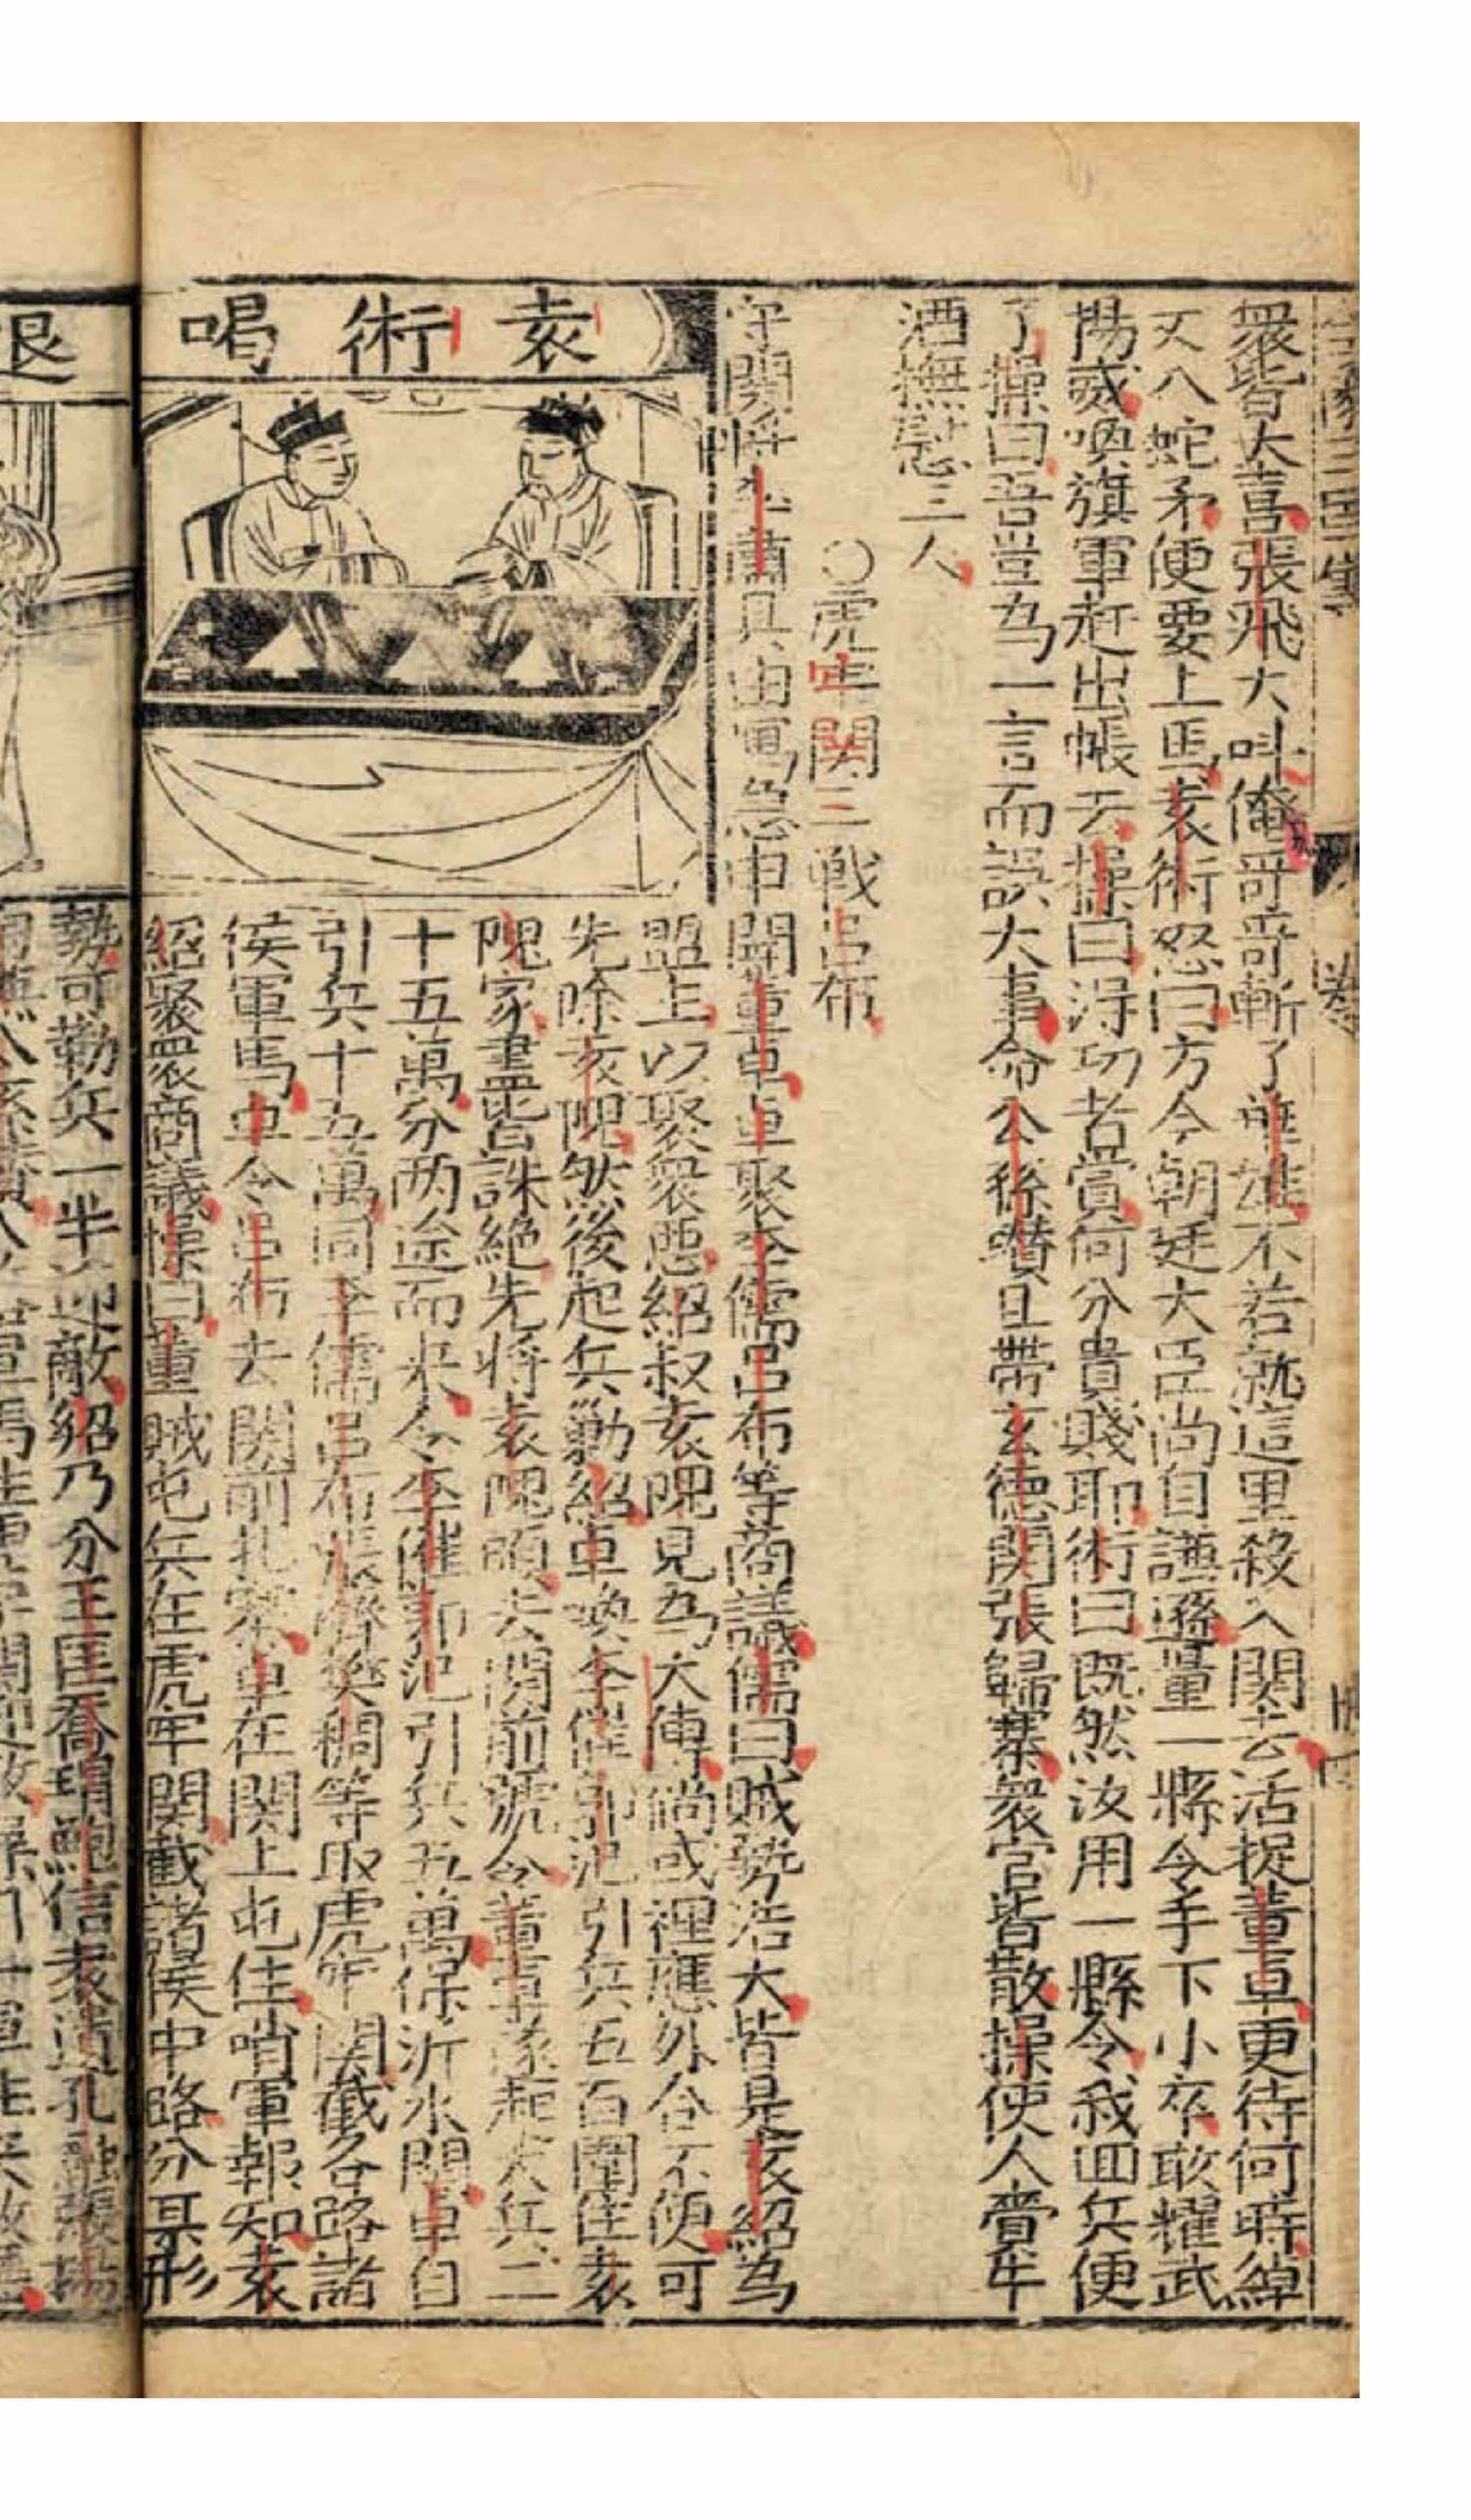 衆皆大喜張飛大叫俺哥哥斬了華雄不若就這里殺入関去活捉董卓更待何時綽
丈八蛇矛便要上馬袁術怒曰方今朝廷大臣尚自謙遜量一縣令手下小卒敢耀武
揚威喚旗軍赶出帳去操曰淂功者賞何分貴賤耶術曰既然汝用一縣令我回兵便
了操曰吾豈為一言而誤大事命公孫瓚且帶玄德関張歸寨衆官皆散操使人賫牛
酒撫慰三人
〇虎牢関三戰呂布
守関將
袁術喝
聞董卓卓聚李儒呂布等商議儒曰賊勢浩大皆是袁紹為
盟主以聚衆惡紹叔袁隗見為太傅倘或裡應外合不便可
先除袁隗然後起兵勦紹卓喚李傕郭汜引兵五百圍住袁
隗家盡皆誅絶先將袁隗頭去関前號令董卓遂起大兵二
十五萬分两途而来令李傕郭汜引兵五萬保沂水関卓自
引兵十五萬同李儒呂布張濟樊稠等取虎牢関截各路諸
侯軍馬卓令呂布去関前扎寨卓在関上屯住哨軍報知袁
紹聚衆商議操曰董賊屯兵在虎牢関截諸侯中路分其形
退
勢可勒兵一半迎敵紹乃分王匡喬瑁鮑信袁遺孔融張楊